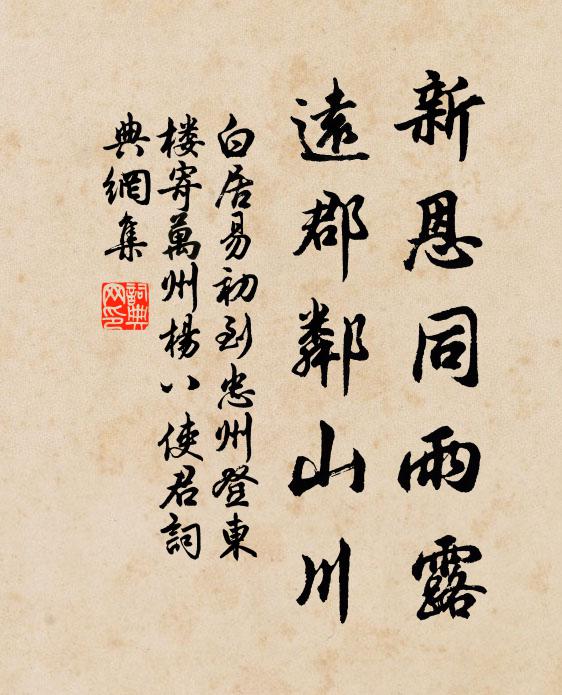 新恩同雨露
遠郡鄰山川
白居易初到忠州登東
楼寄萬州楊八使君詞
典網集
詞典
网印